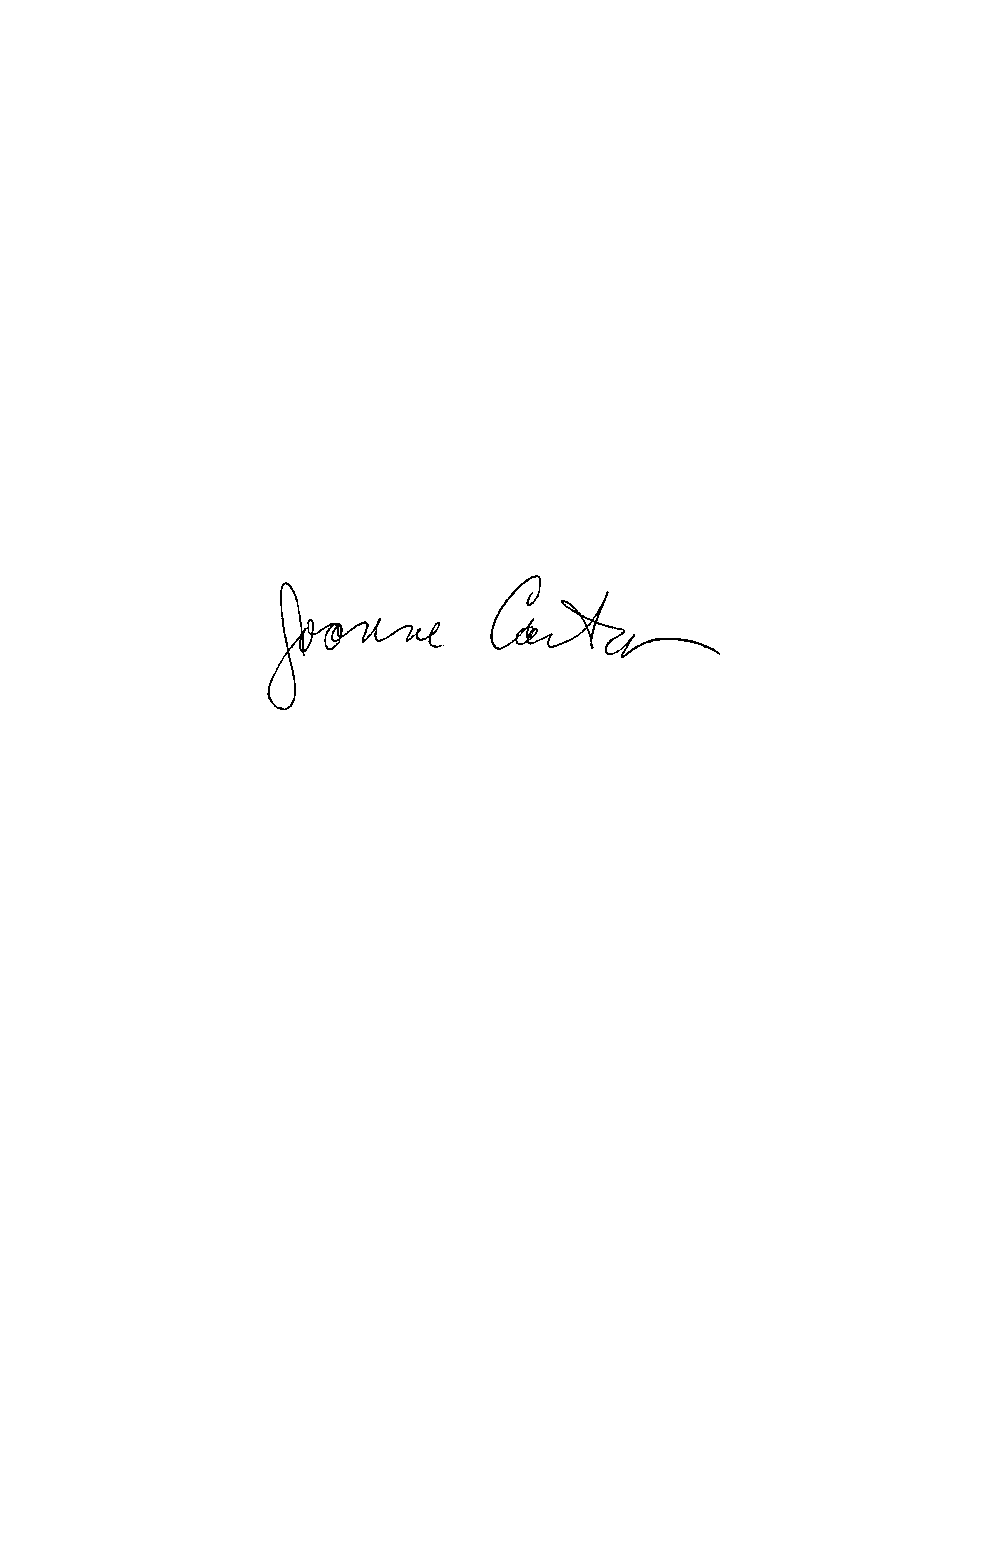 Joanne Carter